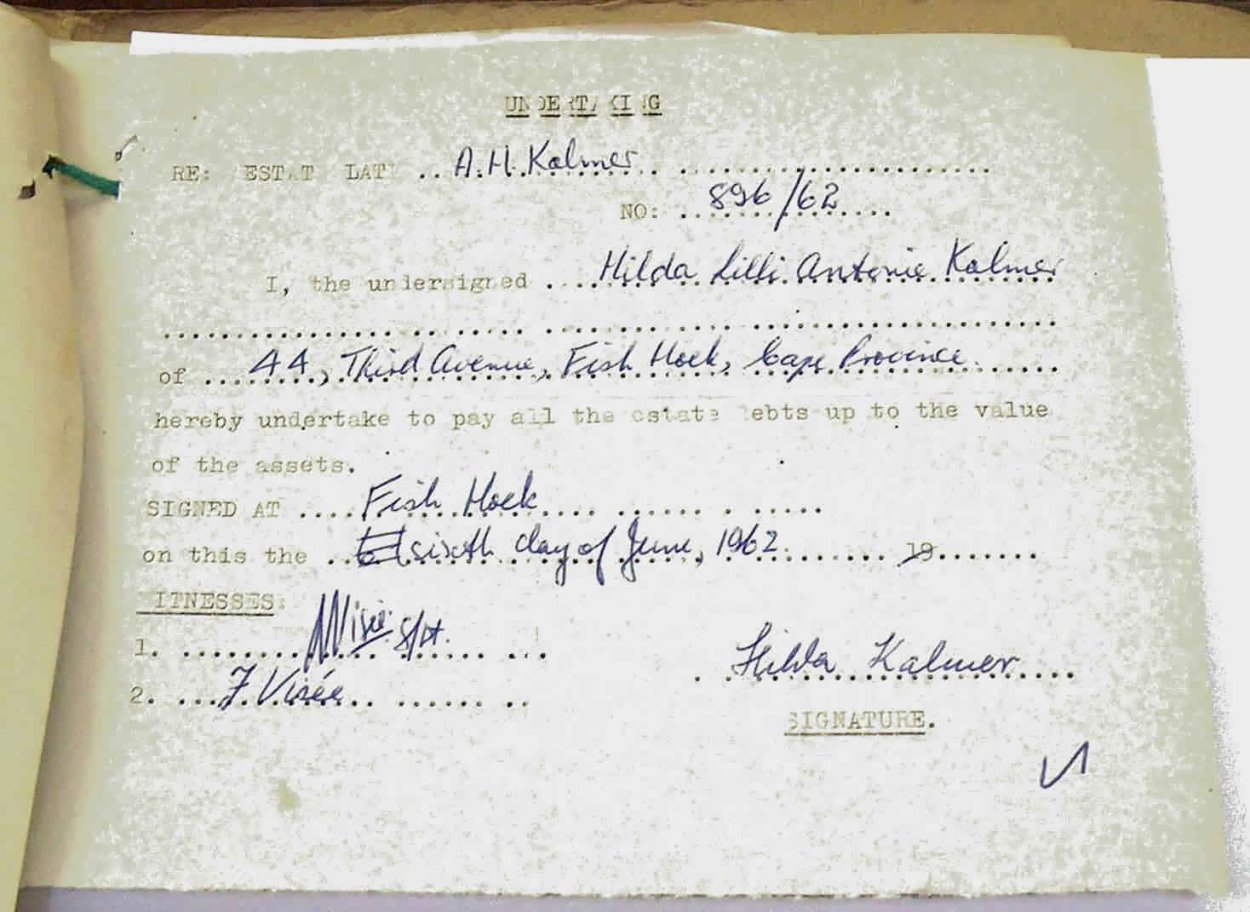 UNDERTAKING
RE: ESTAT LAT .. A.H. Kalmer
NO: 896/62
I, the undersigned .... Hilda Lilli Antonie Kalmer
of .... 44, Third Avenue, Fish Hoek, Cape Province.
hereby undertake to pay all the estate debts up to the value
of the assets.
SIGNED AT .... Fish Hoek
on this the .. sixth day of June, 1962. 19
ITNESSES:
1.
2. ... F. Visée
Hilda Kalmer
SIGNATURE.